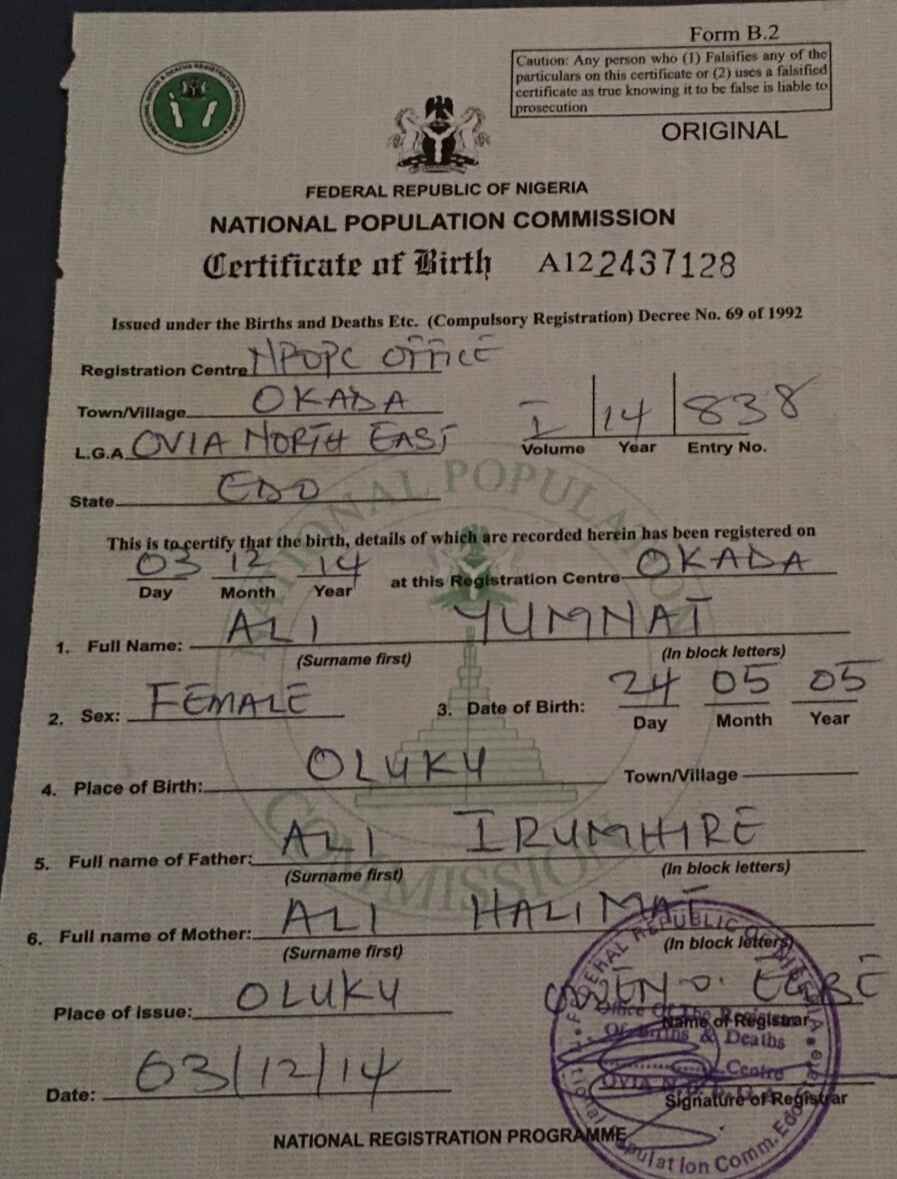 Form B.2
Caution: Any person who (1) Falsifies any of the
particulars on this certificate or (2) uses a falsified
certificate as true knowing it to be false is liable to
prosecution
ORIGINAL
FEDERAL REPUBLIC OF NIGERIA
NATIONAL POPULATION COMMISSION
Certificate of Birth A122437128
Issued under the Births and Deaths Etc. (Compulsory Registration) Decree No. 69 of 1992
Registration Centre NPOPC OFFICE
Town/Village OKADA
I 14 838
Volume Year Entry No.
L.G.A OVIA NORTH EAST
State EDO
NATIONAL POPULATION COMMISSION
This is to certify that the birth, details of which are recorded herein has been registered on
03 12 14 at this Registration Centre OKADA
Day Month Year
1. Full Name: ALI YUMNAT
(Surname first) (In block letters)
2. Sex: FEMALE 3. Date of Birth: 24 05 05
Day Month Year
4. Place of Birth: OLUKU Town/Village
5. Full name of Father: ALI IRUMHIRE
(Surname first) (In block letters)
6. Full name of Mother: ALI HALIMAT
(Surname first) (In block letters)
Place of issue: OLUKU OWEN O. EGBE
Name of Registrar
Date: 03/12/14
Signature of Registrar
NATIONAL REGISTRATION PROGRAMME
FEDERAL REPUBLIC OF NIGERIA
Office Of The Registrar
Of Births & Deaths
Centre
OVIA
National Population Comm. Edo State